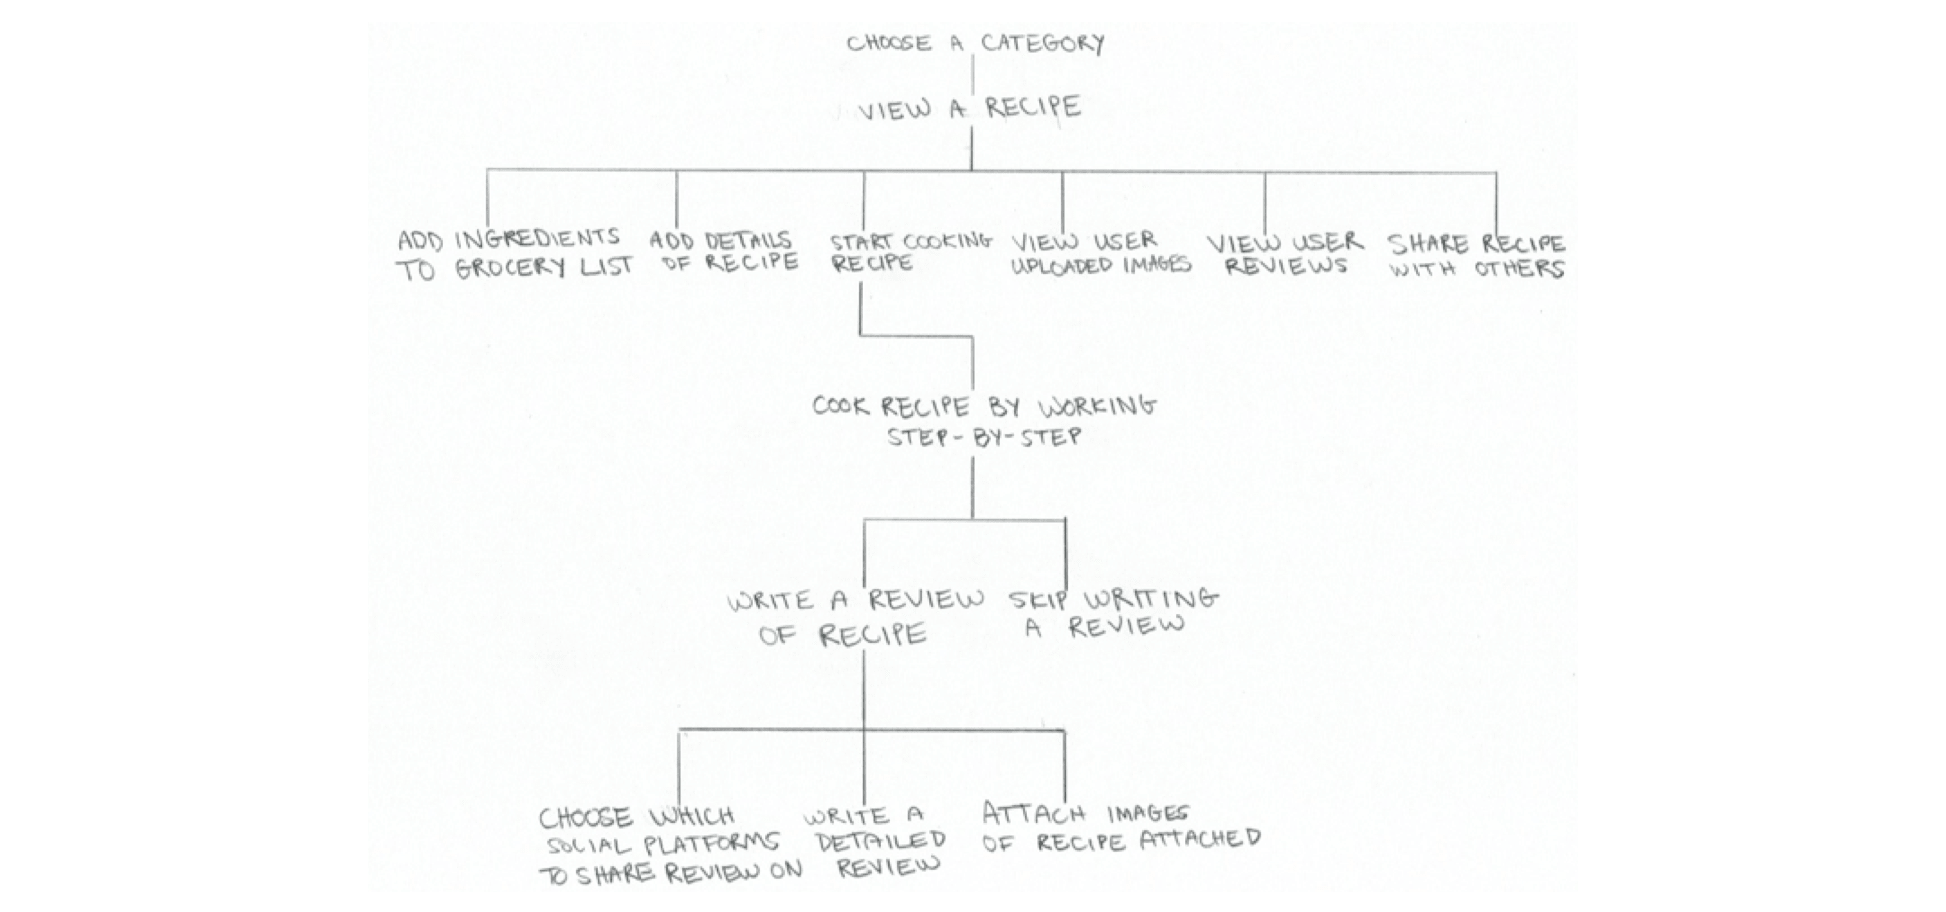 CHOOSE A CATEGORY
VIEW A RECIPE
ADD INGREDIENTS
TO GROCERY LIST
ADD DETAILS
OF RECIPE
START COOKING
RECIPE
VIEW USER
UPLOADED IMAGES
VIEW USER
REVIEWS
SHARE RECIPE
WITH OTHERS
COOK RECIPE BY WORKING
STEP-BY-STEP
WRITE A REVIEW
OF RECIPE
SKIP WRITING
A REVIEW
CHOOSE WHICH
SOCIAL PLATFORMS
TO SHARE REVIEW ON
WRITE A
DETAILED
REVIEW
ATTACH IMAGES
OF RECIPE ATTACHED